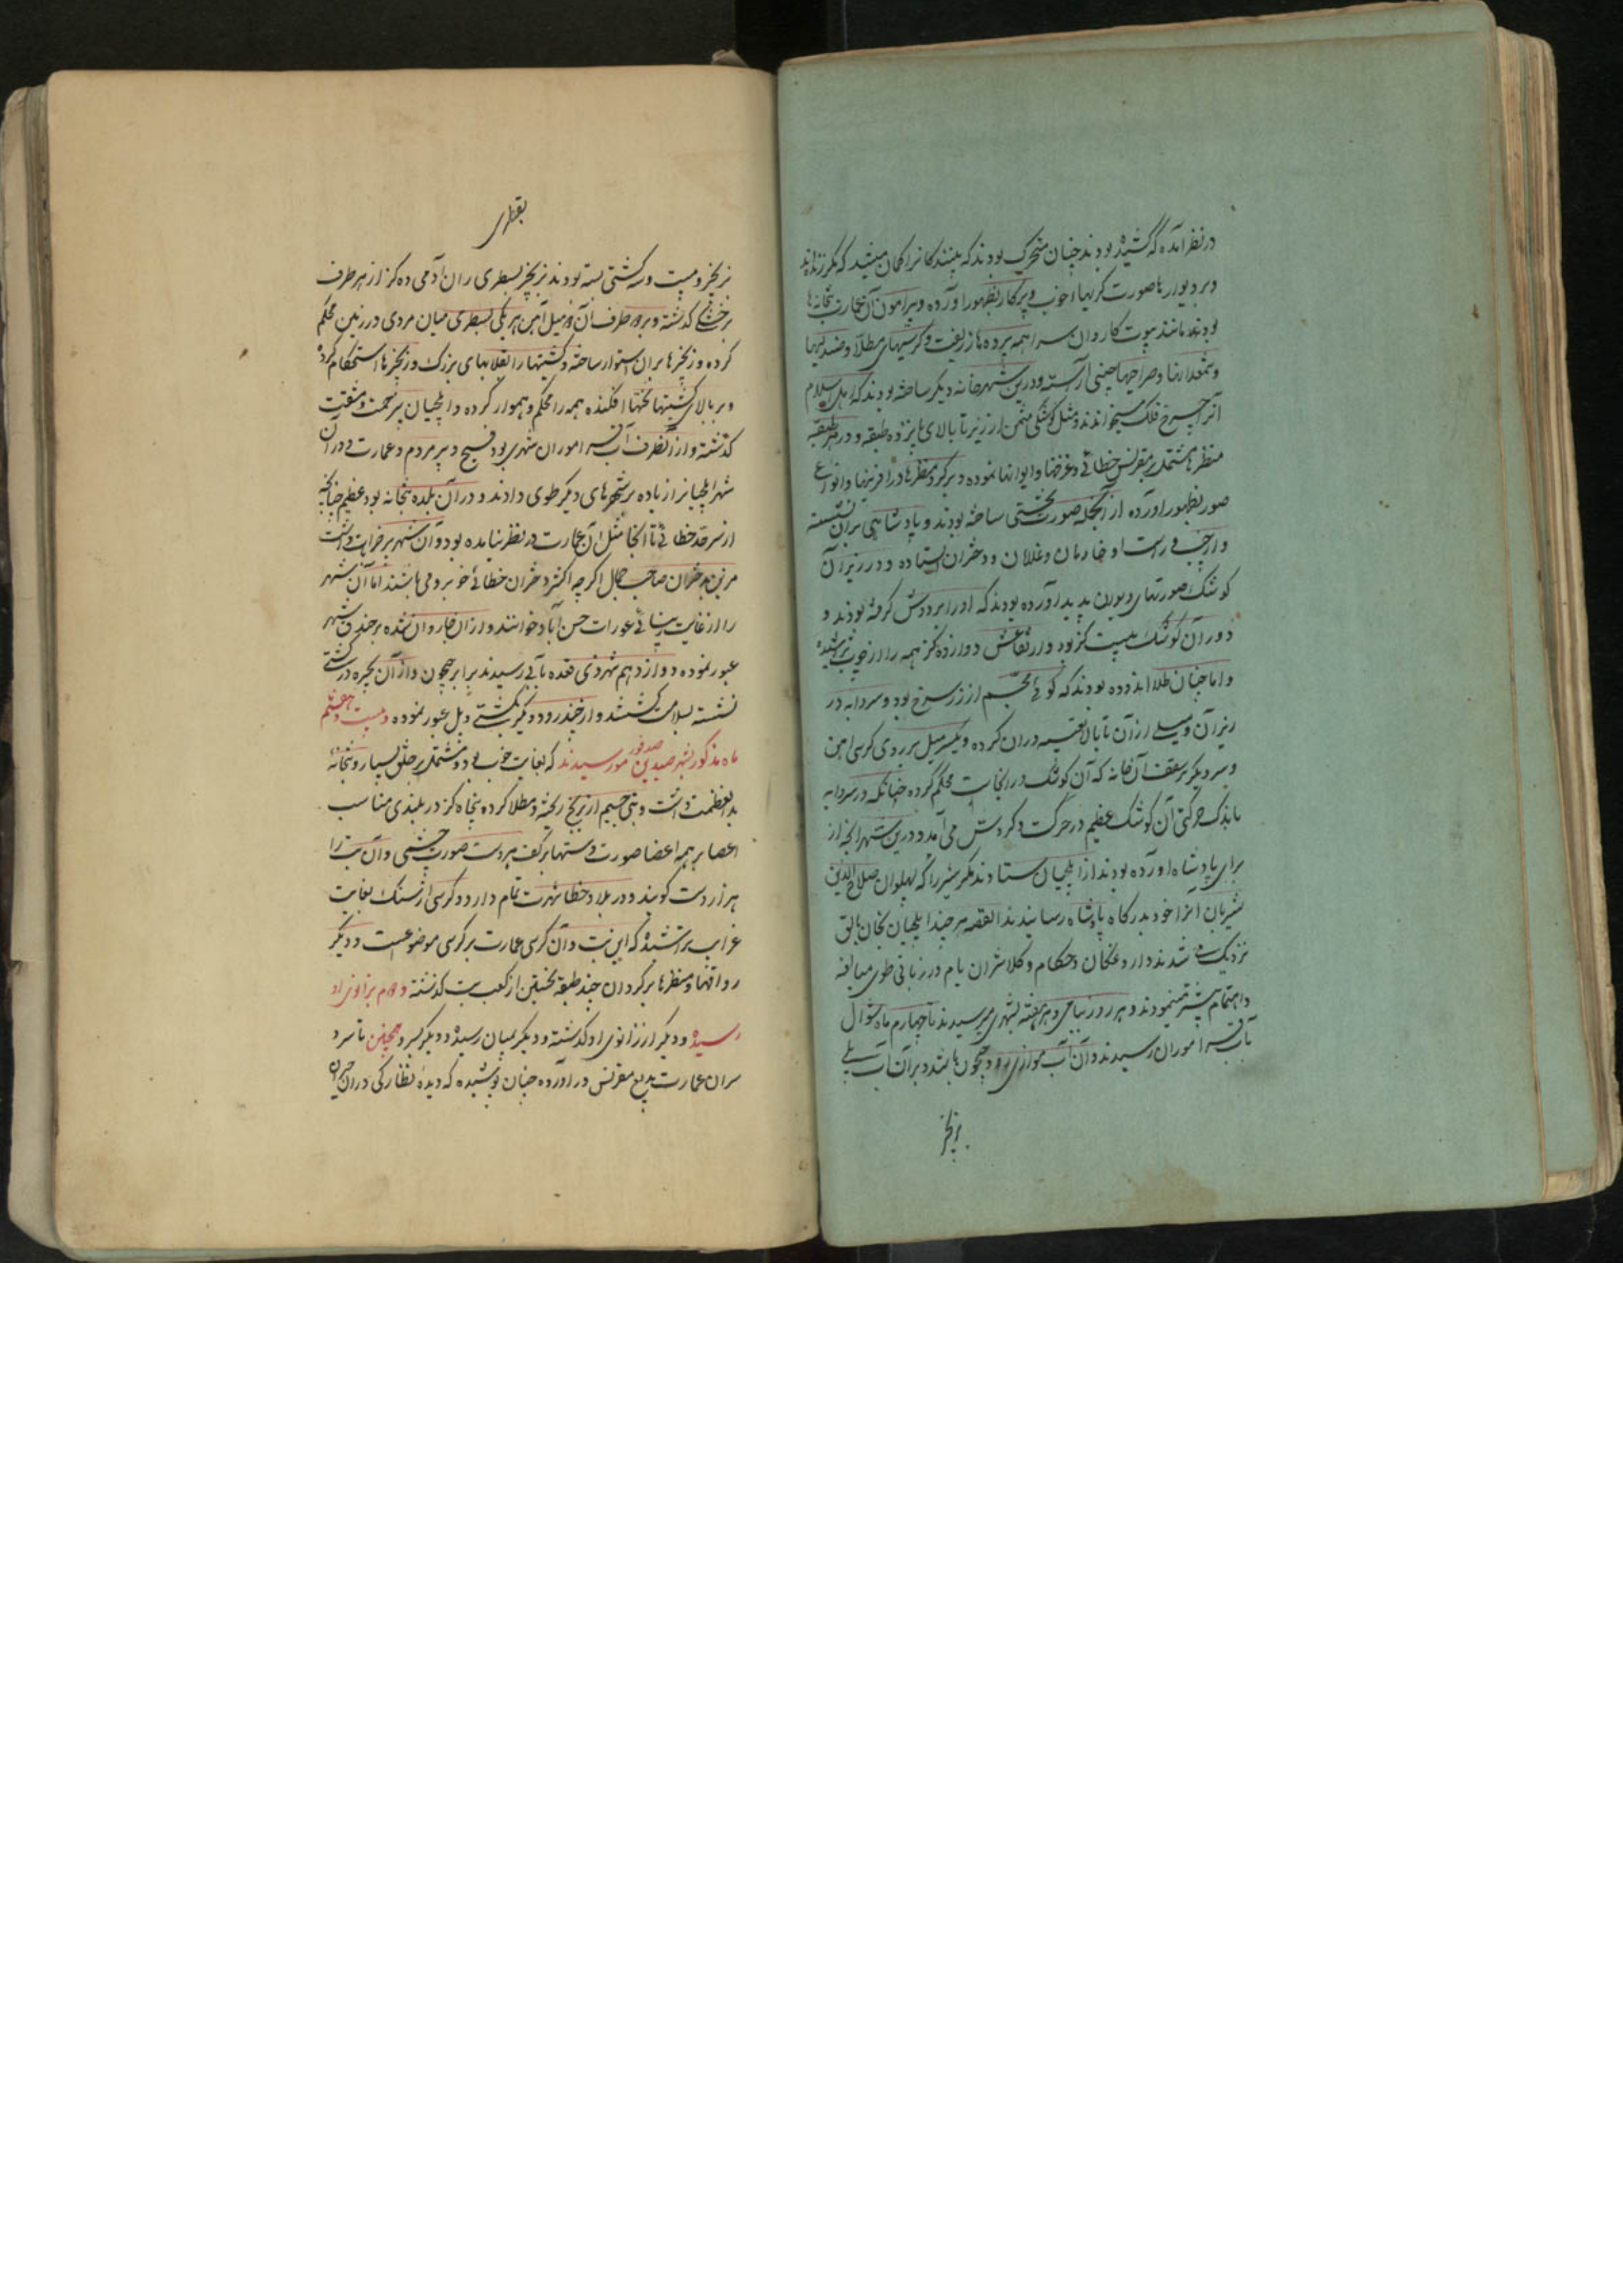 در نظر آمده که کشیده بودند چنان متحرک بودند که بینندکانرا کمان میشد که مکر زنده اند
و بر دیوارها صورت کریها خوب و پرکار بظهور آورده و پیرامون آن عمارت بتخانه ها
بودند مانند بیوت کاروان سرا همه پرده ها زربفت و کرسیهای مطلا و صندلیها
و شمعدانها و صراحیها چینی آراسته و درین شهر خانه دیکر ساخته بودند که اهل اسلام
آنرا چرخ فلک میخواندند و مثل کوشکی مثمن از زیر تا بالا پانزده طبقه و در هر طبقه
منظرها مشتمل بر مقرنس خطائی و غرفها و ایوانها نموده و بر کرد منظرها در آفرینها و انواع
صور بظهور آورده از آنجمله صورت تختی ساخته بودند و پادشاهی بران نشسته
و از چپ و راست او خادمان و غلامان و دختران ایستاده و در زیر آن
کوشک صورتهای دیوان پدید آورده بودند که او را بر دوش کرفته بودند و
دور آن کوشک بیست کز بود و ارتفاعش دوازده کز همه را از چوب تراشیده
و اما چنان طلا اندوده بودند که کوئی مجسم از زر سرخ بود و سردابه در
زیر آن و میلی از آن تا بالا تعبیه دران کرده و یکسر میل بر روی کرسی آهن
و سر دیکر بر سقف آن خانه که آن کوشک در انجاست محکم کرده چنانکه در سردابه
باندک حرکتی آن کوشک عظیم در حرکت و کردش می آمد و درین شهر آنچه از
برای پادشاه آورده بودند از ایلچیان ستادند مکر شیر را که پهلوان صلاح الدین
شیربان آنرا خود بدرکاه پادشاه رسانیدند القصه هر چند ایلچیان بخان بالق
نزدیک می شدند داروغکان و حکام و کلانتران یام در زیاتی طوی مبالغه
و اهتمام بیشتر مینمودند و هر روز بیامی و هر هفته بشهری میرسیدند تا چهارم ماه شوال
بآب قرا موران رسیدند و آن آب موازی رود جیحون باشد و بر آن آب پلی
زنجیر
زنجیر و بیست و سه کشتی بسته بودند زنجیر بسطری ران آدمی ده کز از هر طرف
بر خشکی کذشته و بر دو طرف آن دو میل آهن هر یکی بسطری میان مردی در زمین محکم
کرده و زنجیرها بران استوار ساخته و کشتیها را بقلابهای بزرک و زنجیرها استحکام کرده
و بر بالای کشتیها تختها افکنده همه را محکم و هموار کرده و ایلچیان بیزحمت و مشقت
کذشتند و از آنطرف آب قراموران شهری بود فسیح و پر مردم و عمارت و در آن
شهر ایلچیانرا زیاده بر شهرهای دیکر طوی دادند و در آن بلده بتخانه بود عظیم چنانچه
از سرحد خطائی تا انجا مثل آن عمارت در نظر نیامده بود و آن شهر سه خرابات داشت
مزین بدختران صاحب جمال اکرچه اکثر دختران خطائی خوبرو می باشند اما آن شهر
را از غایت زیبائی عورات حسن آباد خوانند و از آن شهر روان شده بر چند شهر
عبور نموده دوازدهم شهر ذی قعده بآبی رسیدند برابر جیحون و از آن بحیره در کشتی
نشسته بسلامت کذشتند و از چند رود دیکر بکشتی و پل عبور نموده و بیست و هفتم
ماه مذکور بشهر صدین فور رسیدند که بغایت خوب بود مشتمل بر خلق بسیار و بتخانهٔ
بدان عظمت داشت و بتی جسیم از برنج ریخته و مطلا کرده پنجاه کز در بلندی متناسب
اعضا بر همه اعضا صورت دستها بر کف هر دست صورت چشمی و آن بت را
هزار دست کویند و در بلاد خطا شهرت تمام دارد و کرسی از سنک بغایت
غراب تراشیده که این بت و آن کرسی عمارت بر کرسی موضوعست و دیکر
رواقها و منظرها بر کرد آن چند طبقه نخستین از کعب بت کذشته دوم بزانوی او
رسیده و دیکر از زانوی او کذشته و دیکر بمیان رسیده و دیکر بسر و همچنین تا سر و
سر آن عمارت بدیع مقرنس در آورده چنان پوشیده که دیده نظارکی در آن حیران